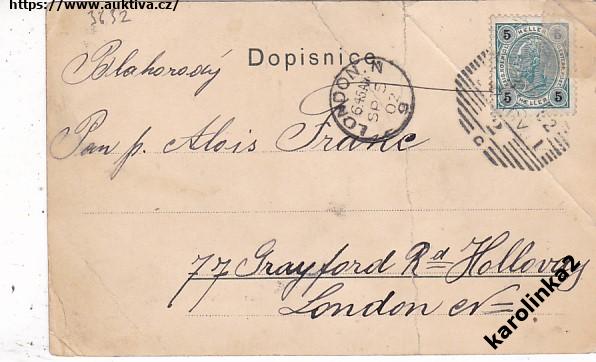 https://www.auktiva.cz/
3832
Dopisnice
5 HELLER 5
5 HELLER 5
LONDON. N
6.45 AM
SP 5
02
Blahorodý
Pan p. Alois Franc
77 Grayford Rd Holloway
London N
karolinka2